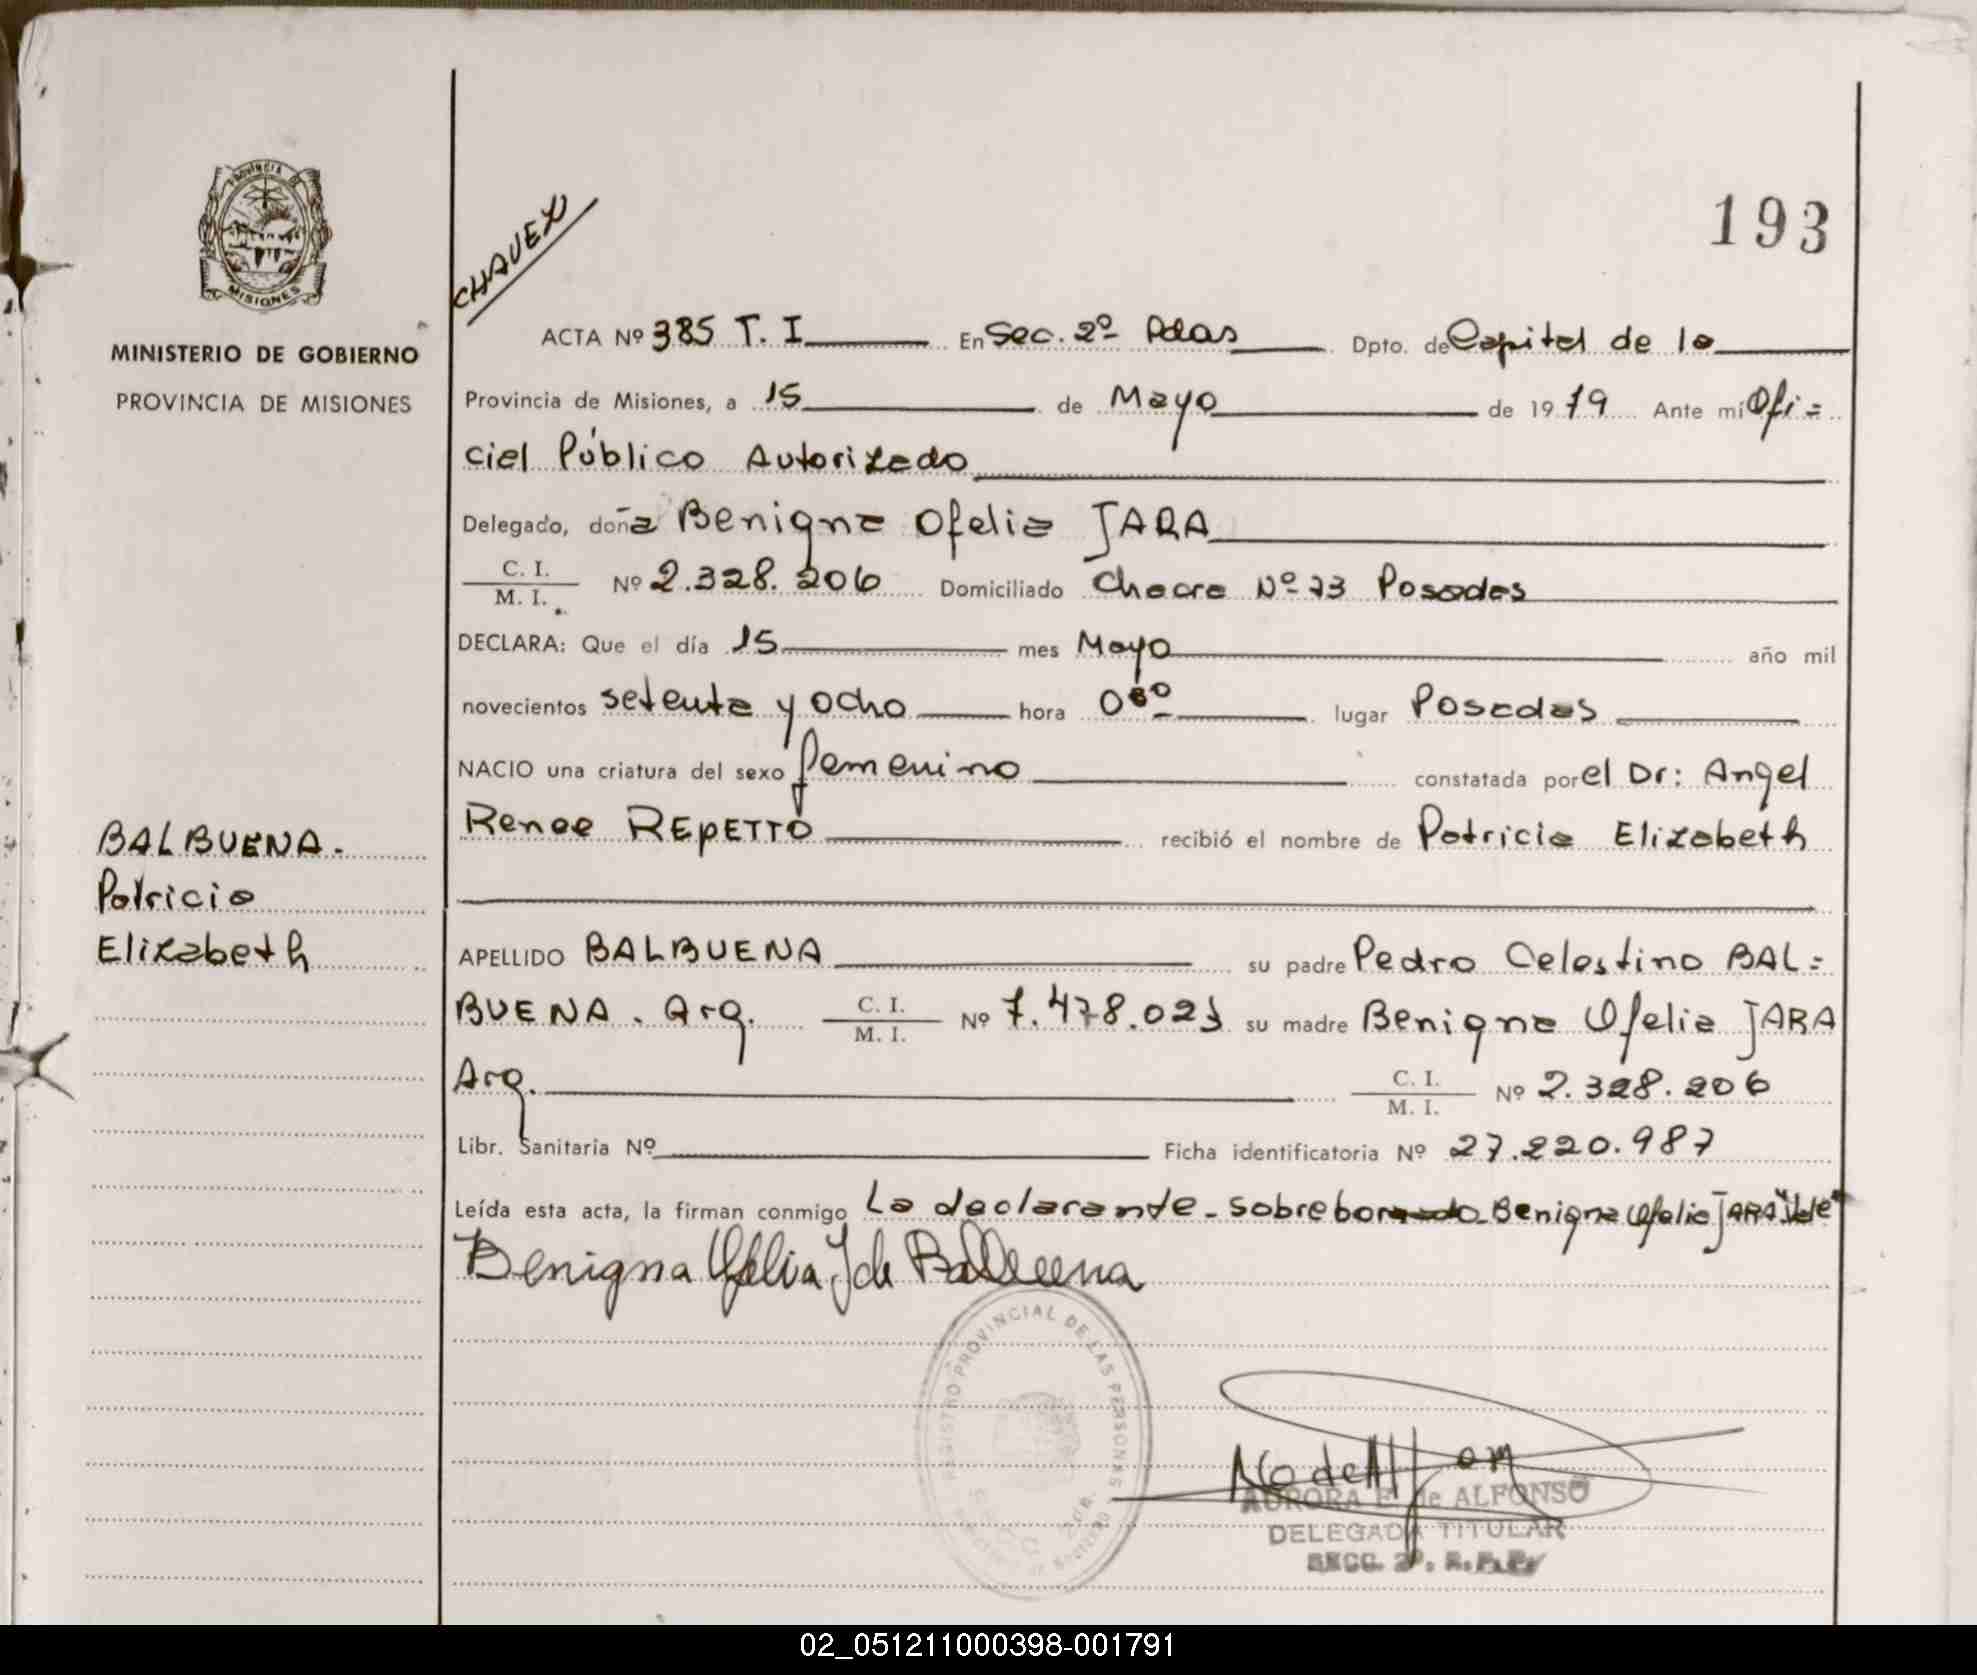 PROVINCIA DE
MISIONES
MINISTERIO DE GOBIERNO
PROVINCIA DE MISIONES
CHAVEX
193
ACTA Nº 385 T. I En Sec. 2º Pdas Dpto. de Capital de la
Provincia de Misiones, a 15 de Mayo de 1979 Ante mí Ofi=
cial Público Autorizado
Delegado, doña Benigna Ofelia JARA
C. I.
M. I. Nº 2.328.206 Domiciliado Chacra Nº 73 Posadas
DECLARA: Que el día 15 mes Mayo año mil
novecientos setenta y ocho hora lugar Posadas
NACIO una criatura del sexo femenino constatada por el Dr: Angel
Renee REPETTO recibió el nombre de Patricia Elizabeth
BALBUENA.
Patricia
Elizabeth
APELLIDO BALBUENA su padre Pedro Celestino BAL=
BUENA. Arg. C. I.
M. I. Nº 7.478.023 su madre Benigna Ofelia JARA
Arg. C. I.
M. I. Nº 2.328.206
Libr. Sanitaria Nº Ficha identificatoria Nº 27.220.987
Leída esta acta, la firman conmigo La declarante - sobreborrado - Benigna Ofelia JARA "Vale"
Benigna Ofelia J de Balbuena
REGISTRO PROVINCIAL DE LAS PERSONAS
AURORA E. de ALFONSO
DELEGADA TITULAR
SECC. 2ª. R.P.P.
02_051211000398-001791